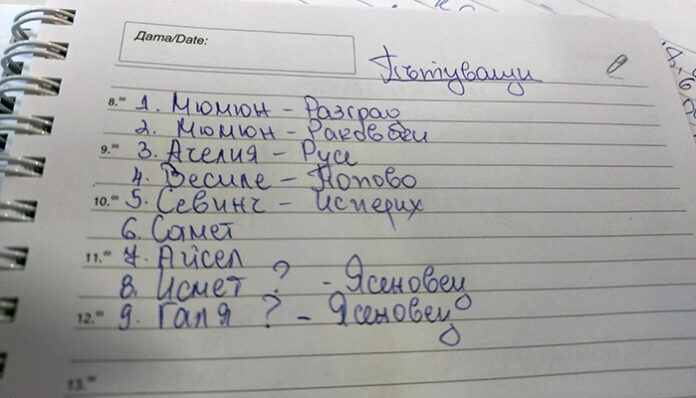 Дата/Date:
Пътуващи
8.00 1. Мюмюн - Разград
2. Мюмюн - Раковски
9.00 3. Ачелия - Русе
4. Весиле - Попово
10.00 5. Севинч - Исперих
6. Самет
11.00 7. Айсел
8. Исмет ? - Ясеновец
12.00 9. Галя ? - Ясеновец
13.00